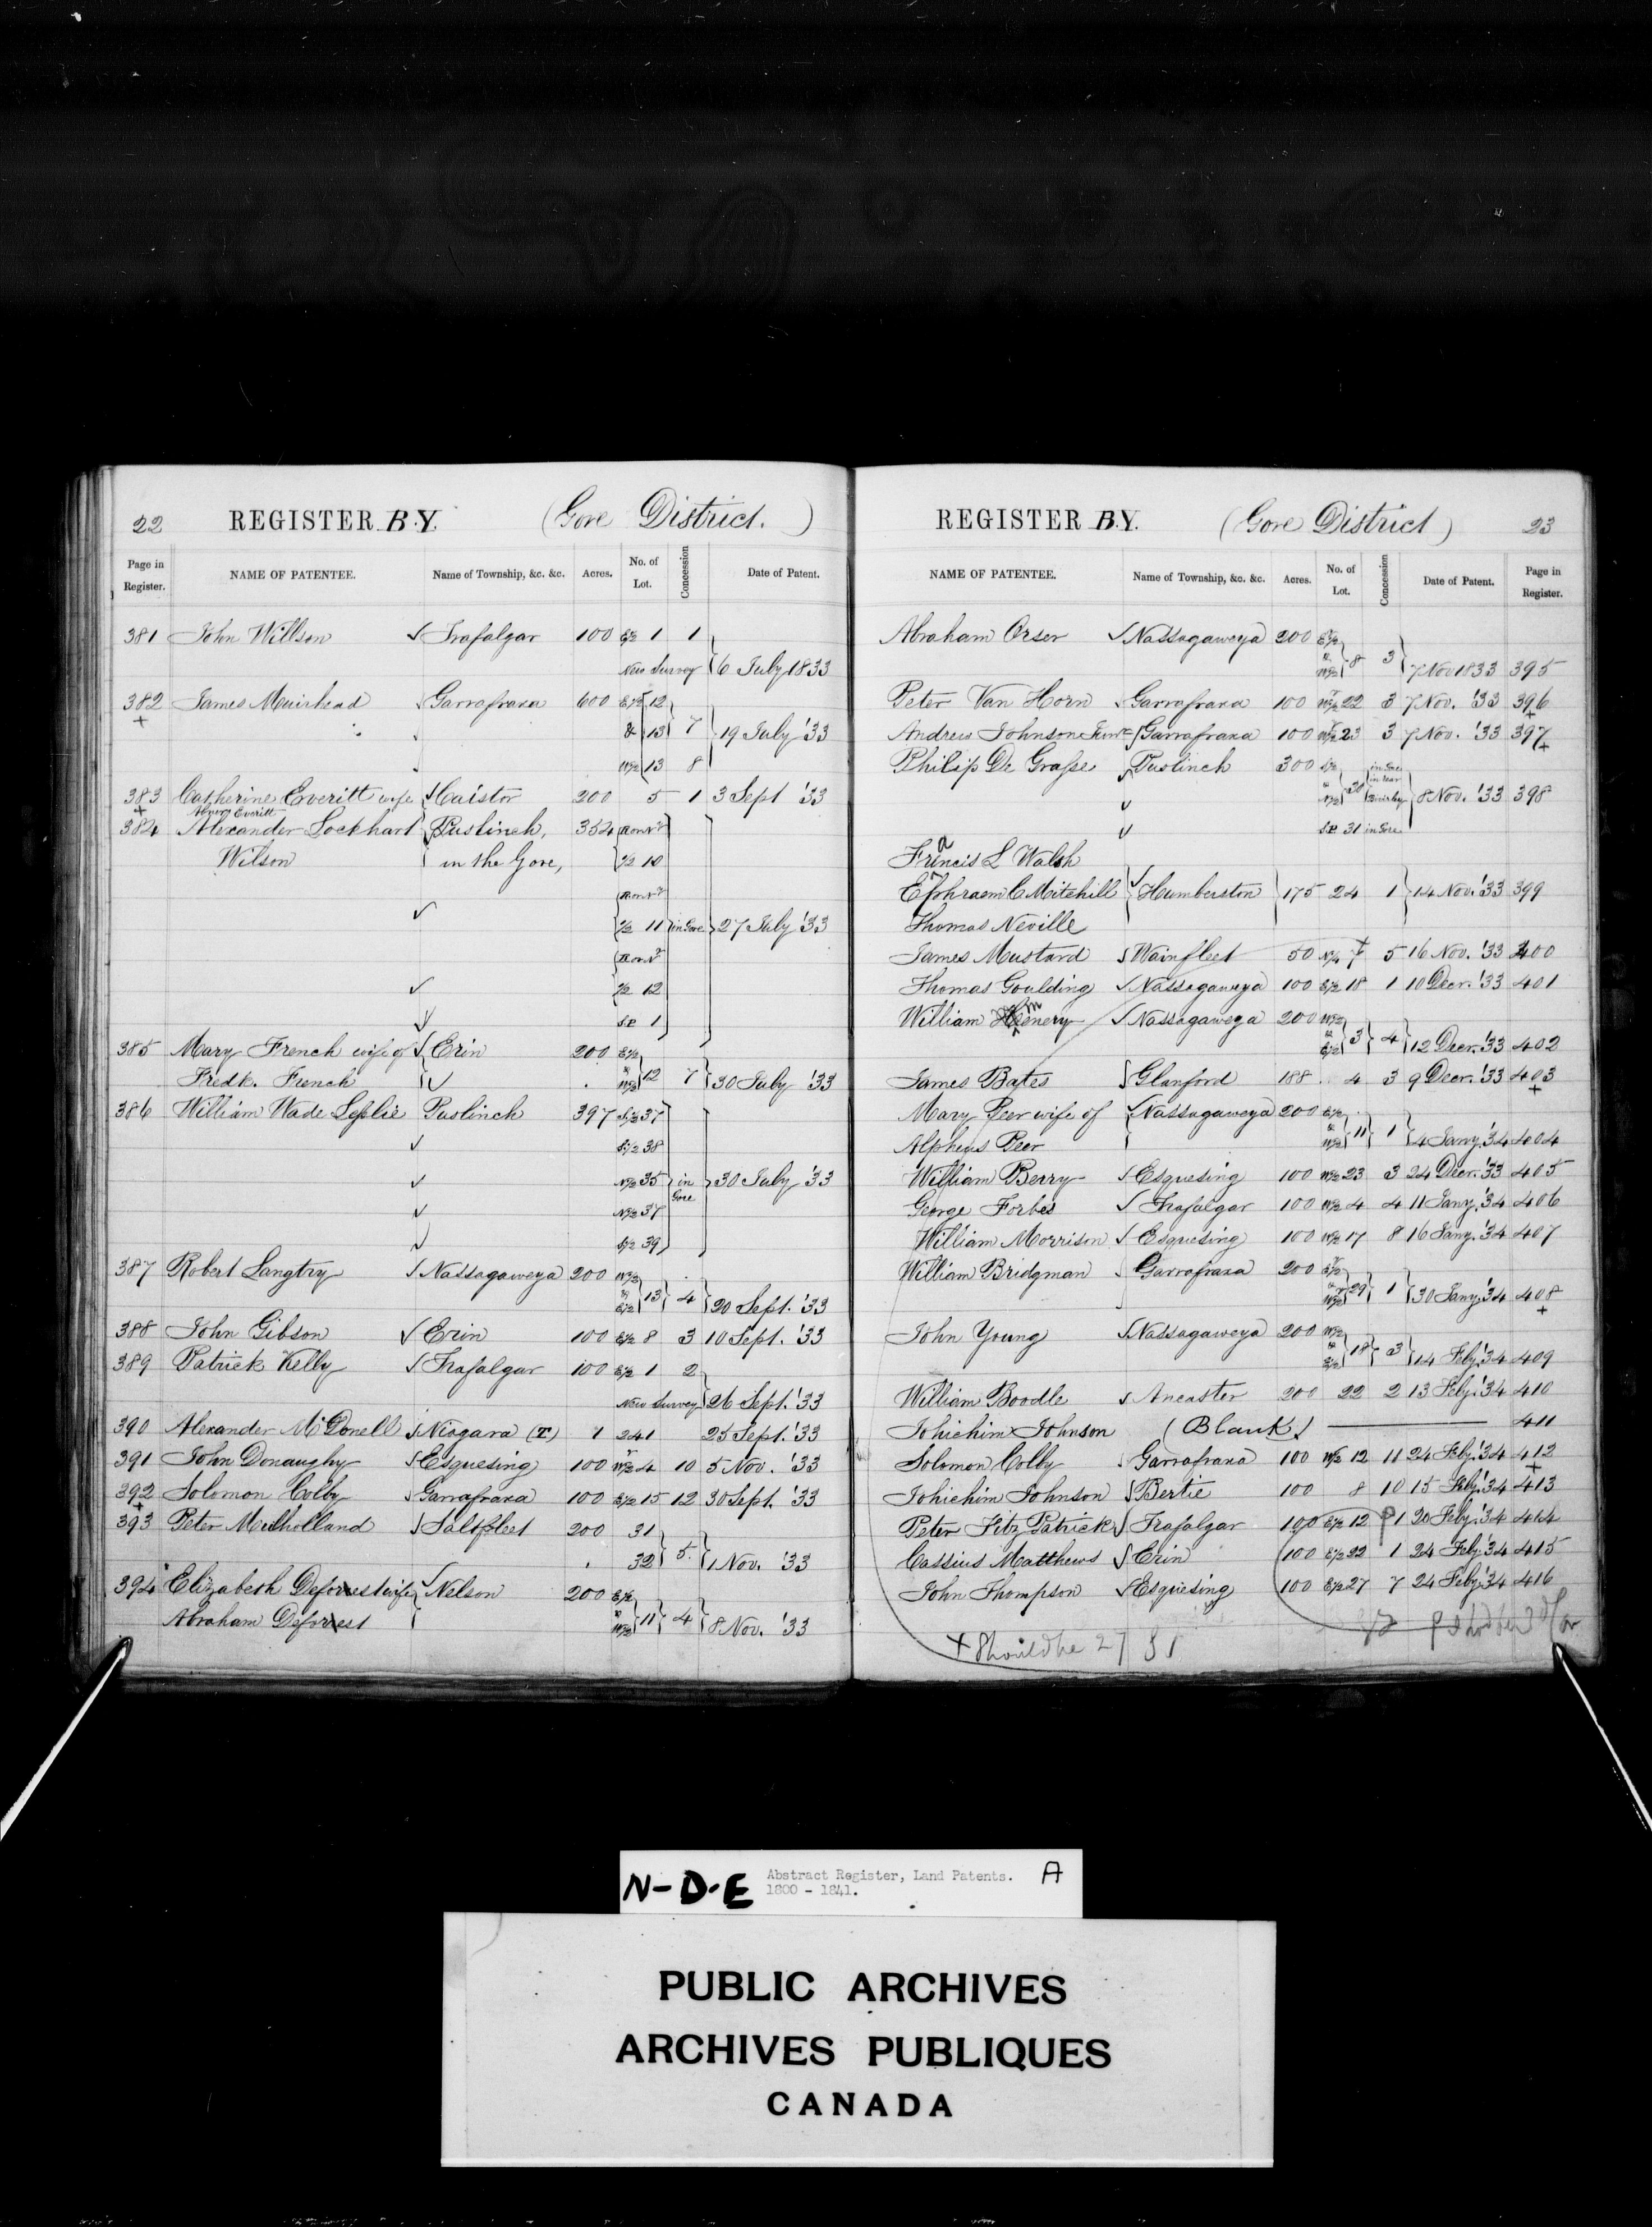 22 REGISTER B.Y. (Gore District.)
Page in Register. NAME OF PATENTEE. Name of Township, &c. &c. Acres. No. of Lot. Concession Date of Patent.
381 John Willson Trafalgar 100 E½ 1 1
New Survey 6 July 1833
382 James Muirhead Garrafraxa 600 E½ 12
& 13 7 19 July '33
W½ 13 8
383 Catherine Everitt wife Caistor 200 5 1 3 Sept '33
Everitt
384 Alexander Lockhart Puslinch, 354
Wilson in the Gore, ½ 10
½ 11 in Gore 27 July '33
½ 12
1
385 Mary French wife of Erin 200 E½
Fredk. French & W½ 12 7 30 July '33
386 William Wade Leslie Puslinch 397 S½ 37
S½ 38
N½ 35 in Gore 30 July '33
N½ 37
S½ 39
387 Robert Langtry Nassagaweya 200 W½
& E½ 13 4 20 Sept. '33
388 John Gibson Erin 100 E½ 8 3 10 Sept. '33
389 Patrick Kelly Trafalgar 100 E½ 1 2
New Survey 26 Sept. '33
390 Alexander McDonell Niagara (T) 1 241 25 Sept. '33
391 John Donaughy Esquesing 100 W½ 4 10 5 Nov. '33
392 Solomon Colby Garrafraxa 100 E½ 15 12 30 Sept. '33
393 Peter Mulholland Saltfleet 200 31
32 5 1 Nov. '33
394 Elizabeth Deforest wife Nelson 200 E½
Abraham Deforest & W½ 11 4 8 Nov. '33
REGISTER B.Y. (Gore District) 23
NAME OF PATENTEE. Name of Township, &c. &c. Acres. No. of Lot. Concession Date of Patent. Page in Register.
Abraham Orser Nassagaweya 200 E½
& W½ 8 3 7 Nov 1833 395
Peter Van Horn Garrafraxa 100 W½ 22 3 7 Nov. '33 396
Andrew Johnson Junr Garrafraxa 100 W½ 23 3 7 Nov. '33 397
Philip De Grasse Puslinch 300
30 8 Nov. '33 398
31 in Gore
Francis L Walsh
Ephraem C Mitchill Humberston 175 24 1 14 Nov. '33 399
Thomas Neville
James Mustard Wainfleet 50 5 16 Nov. '33 400
Thomas Goulding Nassagaweya 100 E½ 18 1 10 Decr. '33 401
William Nassagaweya 200 W½
& E½ 3 4 12 Decr. '33 402
James Bates Glanford 188 4 3 9 Decr. '33 403
Mary Peer wife of Nassagaweya 200 E½
Alpheus Peer & W½ 11 1 4 Jany. '34 404
William Berry Esquesing 100 W½ 23 3 24 Decr. '33 405
George Forbes Trafalgar 100 W½ 4 4 11 Jany. '34 406
William Morrison Esquesing 100 W½ 17 8 16 Jany. '34 407
William Bridgman Garrafraxa 200 E½
& W½ 29 1 30 Jany. '34 408
John Young Nassagaweya 200 W½
& E½ 18 3 14 Feby. '34 409
William Boodle Ancaster 200 22 2 13 Feby. '34 410
Johichim Johnson (Blank) 411
Solomon Colby Garrafraxa 100 W½ 12 11 24 Feby. '34 412
Johichim Johnson Bertie 100 8 10 15 Feby. '34 413
Peter Fitz Patrick Trafalgar 100 E½ 12 1 20 Feby. '34 414
Cassius Matthews Erin 100 E½ 22 1 24 Feby. '34 415
John Thompson Esquesing 100 E½ 27 7 24 Feby. '34 416
+ Should be 27
N-D-E Abstract Register, Land Patents. A
1800 - 1841.
PUBLIC ARCHIVES
ARCHIVES PUBLIQUES
CANADA